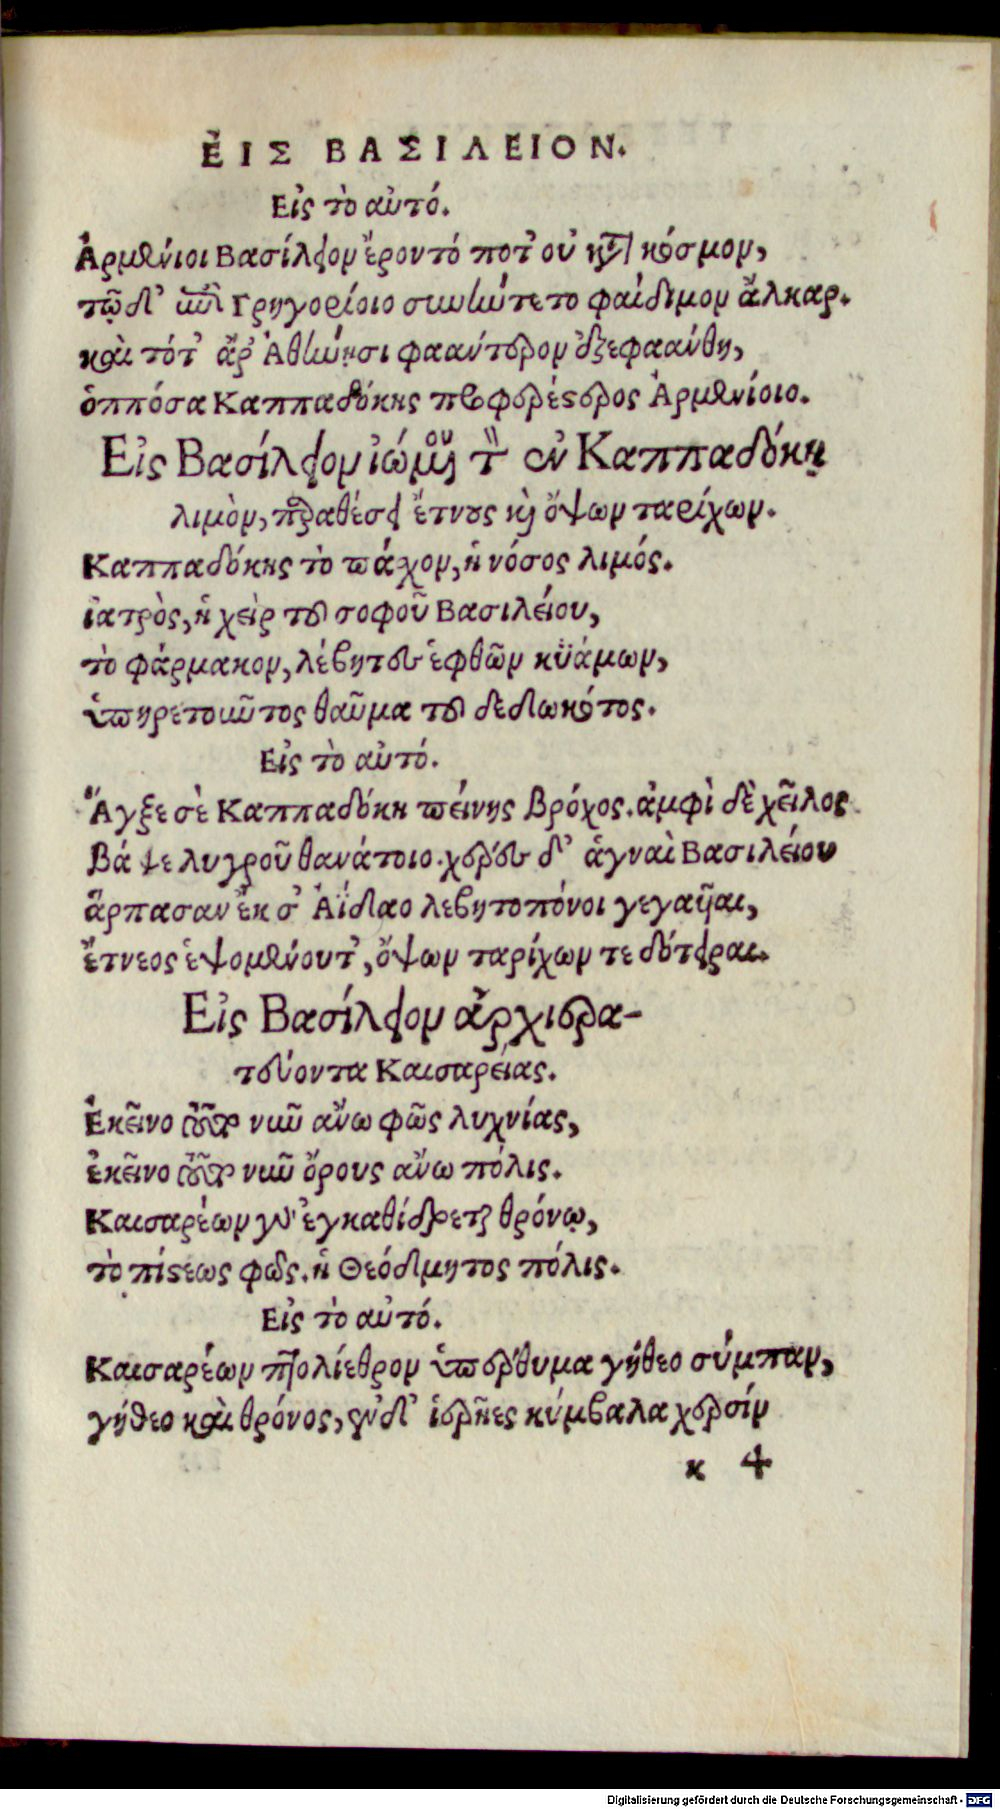 ἘΙΣ ΒΑΣΙΛΕΙΟΝ.
Εἰς τὸ αὐτό.
Ἀρμένιοι Βασίλειον ἔροντό ποτ' οὐ κατὰ κόσμον,
τῷ δ' ἐπὶ Γρηγορίοιο συνήντετο φαίδιμον ἄλκαρ.
καὶ τότ' ἄρ' Ἀθήνῃσι φαάντερον ἐξεφαάνθη,
ὁππόσα Καππαδόκης προφερέστερος Ἀρμενίοιο.
Εἰς Βασίλειον ἰώμενον τὴν ἐν Καππαδόκῃ
λιμὸν, παραθέσει ἔτνους καὶ ὄψων ταρίχων.
Καππαδόκης τὸ πάσχον, ἡ νόσος λιμός.
ἰατρὸς, ἡ χεὶρ τοῦ σοφοῦ Βασιλείου,
τὸ φάρμακον, λέβητες ἑφθῶν κυάμων,
ὑπηρετοῦντος θαῦμα τοῦ δεδωκότος.
Εἰς τὸ αὐτό.
Ἄγξε σὲ Καππαδόκη πείνης βρόχος. ἀμφὶ δὲ χεῖλος
βάψε λυγροῦ θανάτοιο. χέρες δ' ἁγναὶ Βασιλείου
ἅρπασαν ἔκ σ' Ἀΐδαο λεβητοπόνοι γεγαυῖαι,
ἔτνεος ἑψομένου τ', ὄψων ταρίχων τε δότειραι.
Εἰς Βασίλειον ἀρχιερα-
τεύοντα Καισαρείας.
Ἐκεῖνο τοῦτο νῦν ἄνω φῶς λυχνίας,
ἐκεῖνο τοῦτο νῦν ὄρους ἄνω πόλις.
Καισαρέων γὰρ ἐγκαθίδρεται θρόνῳ,
τὸ πίστεως φῶς. ἡ Θεόδμητος πόλις.
Εἰς τὸ αὐτό.
Καισαρέων πτολίεθρον ὑπέρθυμα γήθεο σύμπαν,
γήθεο καὶ θρόνος, εὖ δ' ἱερῆες κύμβαλα χερσίν
κ 4
Digitalisierung gefördert durch die Deutsche Forschungsgemeinschaft - DFG